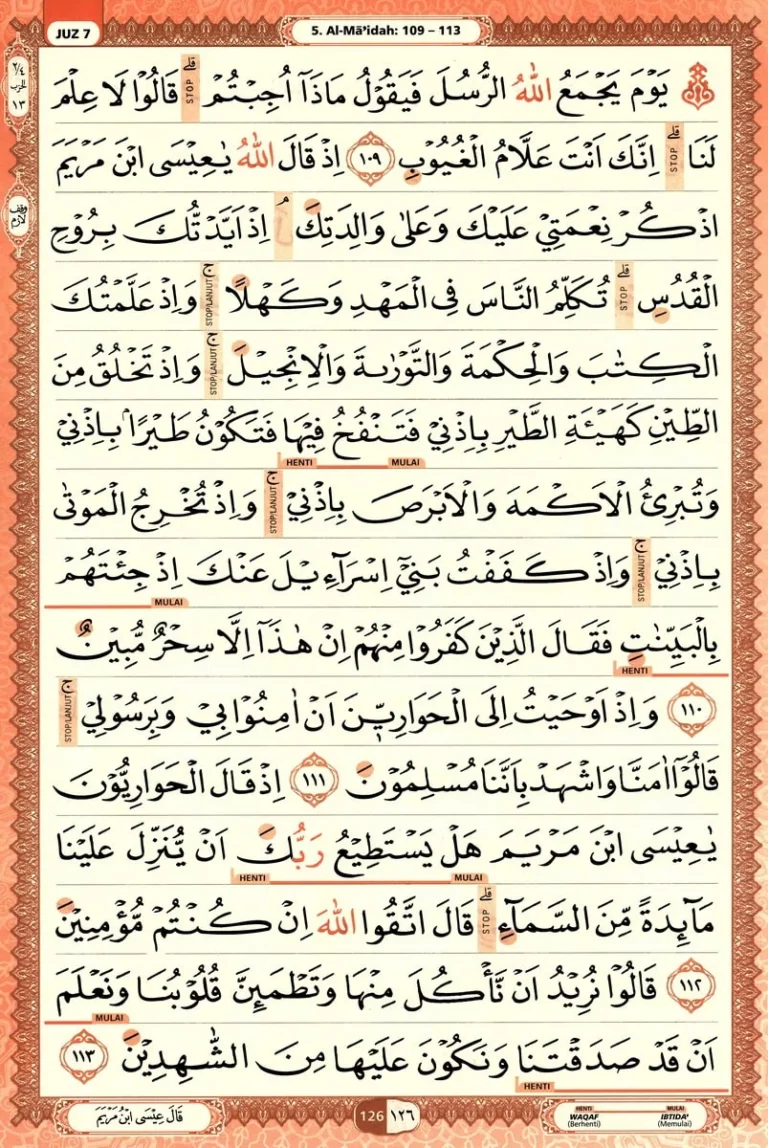 JUZ 7
5. Al-Mā'idah: 109 – 113
يَوْمَ يَجْمَعُ اللّٰهُ الرُّسُلَ فَيَقُوْلُ مَاذَآ اُجِبْتُمْ ۗ STOP قَالُوْا لَا عِلْمَ
لَنَا ۗ STOP اِنَّكَ اَنْتَ عَلَّامُ الْغُيُوْبِ ١٠٩ اِذْ قَالَ اللّٰهُ يٰعِيْسَى ابْنَ مَرْيَمَ
اذْكُرْ نِعْمَتِيْ عَلَيْكَ وَعَلٰى وَالِدَتِكَ ۘ اِذْ اَيَّدْتُّكَ بِرُوْحِ
الْقُدُسِ ۗ STOP تُكَلِّمُ النَّاسَ فِى الْمَهْدِ وَكَهْلًا ۚ STOP/LANJUT وَاِذْ عَلَّمْتُكَ
الْكِتٰبَ وَالْحِكْمَةَ وَالتَّوْرٰىةَ وَالْاِنْجِيْلَ ۚ STOP/LANJUT وَاِذْ تَخْلُقُ مِنَ
الطِّيْنِ كَهَيْـَٔةِ الطَّيْرِ بِاِذْنِيْ فَتَنْفُخُ فِيْهَا فَتَكُوْنُ طَيْرًاۢ بِاِذْنِيْ
MULAI HENTI
وَتُبْرِئُ الْاَكْمَهَ وَالْاَبْرَصَ بِاِذْنِيْ ۚ STOP/LANJUT وَاِذْ تُخْرِجُ الْمَوْتٰى
بِاِذْنِيْ ۚ STOP/LANJUT وَاِذْ كَفَفْتُ بَنِيْٓ اِسْرَاۤءِيْلَ عَنْكَ اِذْ جِئْتَهُمْ
MULAI
بِالْبَيِّنٰتِ فَقَالَ الَّذِيْنَ كَفَرُوْا مِنْهُمْ اِنْ هٰذَآ اِلَّا سِحْرٌ مُّبِيْنٌ
HENTI
١١٠ وَاِذْ اَوْحَيْتُ اِلَى الْحَوَارِيّٖنَ اَنْ اٰمِنُوْا بِيْ وَبِرَسُوْلِيْ ۚ STOP/LANJUT
قَالُوْٓا اٰمَنَّا وَاشْهَدْ بِاَنَّنَا مُسْلِمُوْنَ ١١١ اِذْ قَالَ الْحَوَارِيُّوْنَ
يٰعِيْسَى ابْنَ مَرْيَمَ هَلْ يَسْتَطِيْعُ رَبُّكَ اَنْ يُّنَزِّلَ عَلَيْنَا
MULAI HENTI
مَاۤىِٕدَةً مِّنَ السَّمَاۤءِ ۗ STOP قَالَ اتَّقُوا اللّٰهَ اِنْ كُنْتُمْ مُّؤْمِنِيْنَ
١١٢ قَالُوْا نُرِيْدُ اَنْ نَّأْكُلَ مِنْهَا وَتَطْمَىِٕنَّ قُلُوْبُنَا وَنَعْلَمَ
MULAI
اَنْ قَدْ صَدَقْتَنَا وَنَكُوْنَ عَلَيْهَا مِنَ الشّٰهِدِيْنَ ١١٣
HENTI
HENTI WAQAF (Berhenti)
MULAI IBTIDA' (Memulai)
126 ١٢٦
قَالَ عِيْسَى ابْنُ مَرْيَمَ